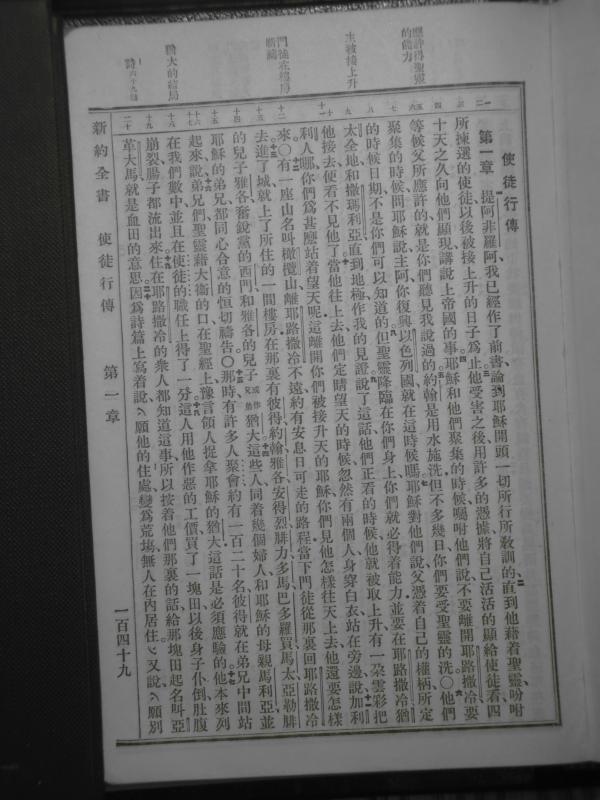 使徒行傳
第一章 提阿非羅阿、我已經作了前書、論到耶穌開頭一切所行所敎訓的、直到他藉着聖靈、吩咐
所揀選的使徒以後、被接上升的日子爲止、他受害之後、用許多的憑據、將自己活活的顯給使徒看、四
十天之久、向他們顯現、講說上帝國的事、耶穌和他們聚集的時候、囑咐他們說、不要離開耶路撒冷、要
等候父所應許的、就是你們聽見我說過的、約翰是用水施洗、但不多幾日、你們要受聖靈的洗、〇他們
聚集的時候、問耶穌說、主阿、你復興以色列國、就在這時候嗎、耶穌對他們說、父憑着自己的權柄、所定
的時候日期、不是你們可以知道的、但聖靈降臨在你們身上、你們就必得着能力、並要在耶路撒冷、猶
太全地、和撒瑪利亞、直到地極、作我的見證、說了這話、他們正看的時候、他就被取上升、有一朶雲彩把
他接去、便看不見他了、當他往上去、他們定睛望天的時候、忽然有兩個人、身穿白衣、站在旁邊、說、加利
利人哪、你們爲甚麼站着望天呢、這離開你們被接升天的耶穌、你們見他怎樣往天上去、他還要怎樣
來、〇有一座山名叫橄欖山、離耶路撒冷不遠、約有安息日可走的路程、當下門徒從那裏回耶路撒冷
去、進了城、就上了所住的一間樓房、在那裏有彼得、約翰、雅各、安得烈、腓力、多馬、巴多羅買、馬太、亞勒腓
的兒子雅各、奮銳黨的西門、和雅各的兒子或作兄弟猶大、這些人、同着幾個婦人、和耶穌的母親馬利亞、並
耶穌的弟兄、都同心合意的恆切禱吿、〇那時、有許多人聚會、約有一百二十名、彼得就在弟兄中間站
起來、說、弟兄們、聖靈藉大衞的口、在聖經上、豫言領人捉拿耶穌的猶大、這話是必須應驗的、他本來列
在我們數中、並且在使徒的職任上得了一分、這人用他作惡的工價、買了一塊田、以後身子仆倒、肚腹
崩裂、腸子都流出來、住在耶路撒冷的衆人都知道這事、所以按着他們那裏的話、給那塊田起名叫亞
革大馬、就是血田的意思、因爲詩篇上寫着說、願他的住處、變爲荒塲、無人在內居住、又說、願別
應許得聖靈
的能力
主被接上升
門徒在樓房
猶大的結局
詩六十九
新約全書 使徒行傳 第一章 一百四十九